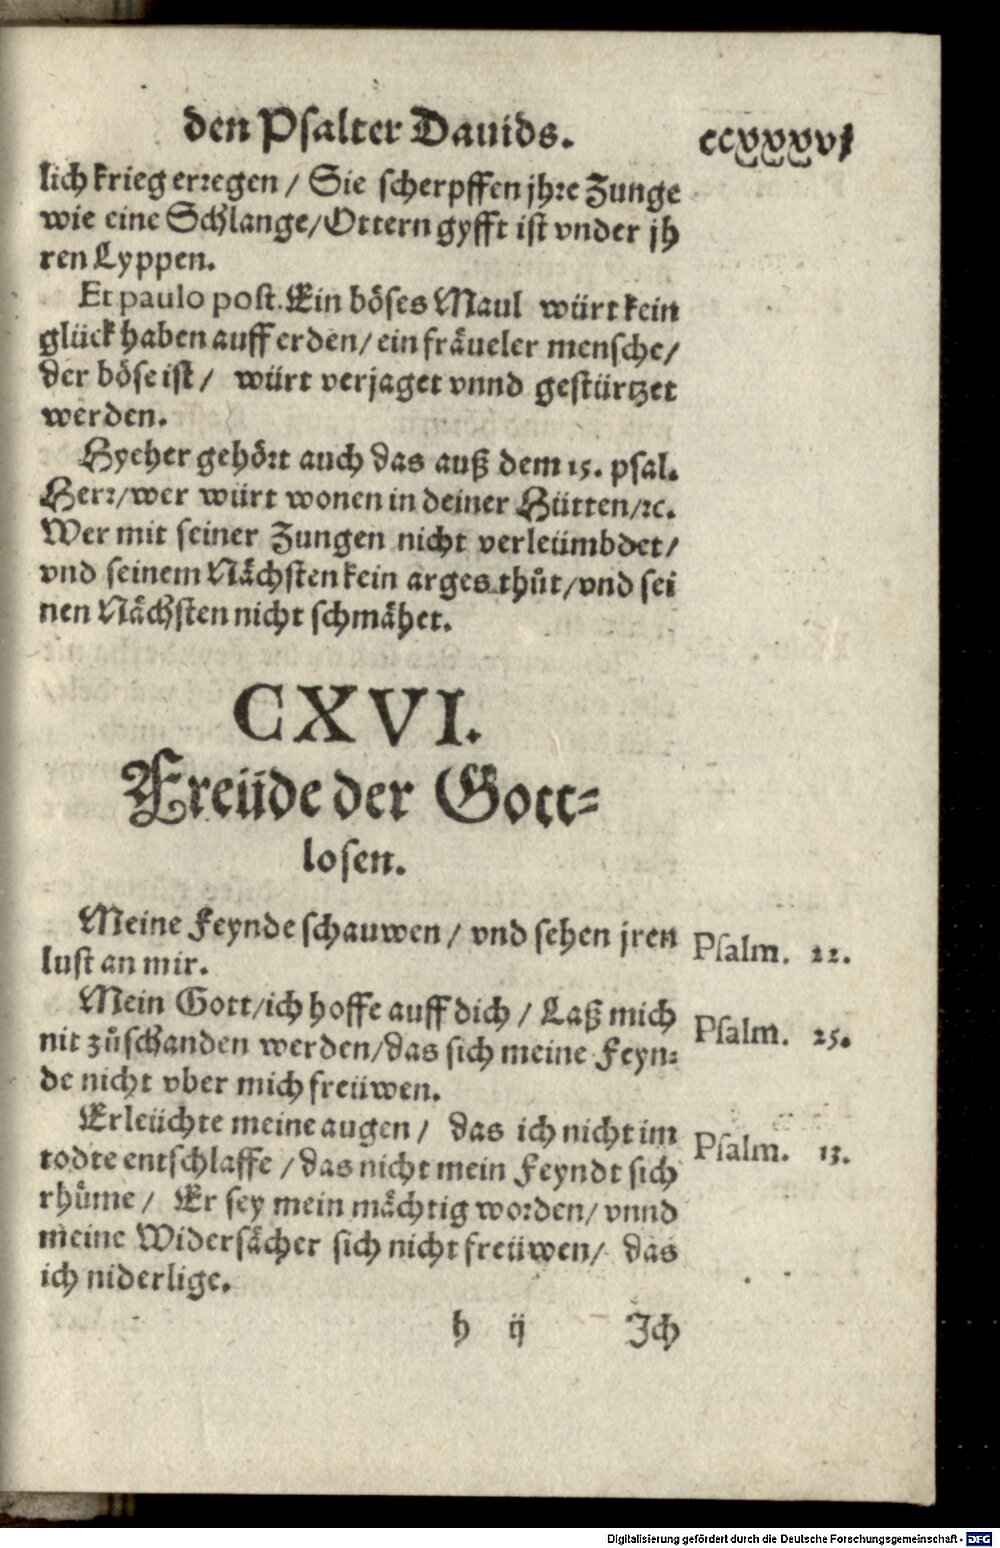 den Psalter Dauids.
ccxxxvj
lich krieg erregen / Sie scherpffen jhre Zunge
wie eine Schlange/Ottern gyfft ist vnder jh
ren Lyppen.
Et paulo post. Ein böses Maul würt kein
glück haben auff erden/ ein fräueler mensche/
der böse ist / würt verjaget vnnd gestürtzet
werden.
Hyeher gehört auch das auß dem 15. psal.
Herr/wer würt wonen in deiner Hütten/ꝛc.
Wer mit seiner Zungen nicht verleümbdet/
vnd seinem Nächsten kein arges thůt/vnd sei
nen Nächsten nicht schmähet.
CXVI.
Freüde der Gott-
losen.
Meine Feynde schauwen / vnd sehen jren
lust an mir.
Psalm. 22.
Mein Gott/ich hoffe auff dich / Laß mich
nit zůschanden werden/das sich meine Feyn-
de nicht vber mich freüwen.
Psalm. 25.
Erleüchte meine augen / das ich nicht im
todte entschlaffe /das nicht mein Feyndt sich
rhůme / Er sey mein mächtig worden/ vnnd
meine Widersächer sich nicht freüwen/ das
ich niderlige.
Psalm. 13.
h ij Ich
Digitalisierung gefördert durch die Deutsche Forschungsgemeinschaft - DFG